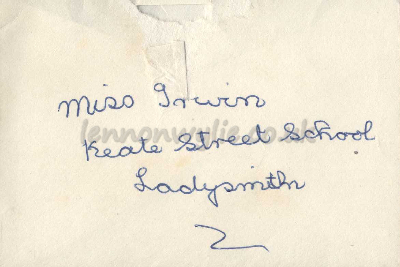 Miss Irwin
lennonwylie.co.uk
Keate Street School
Ladysmith